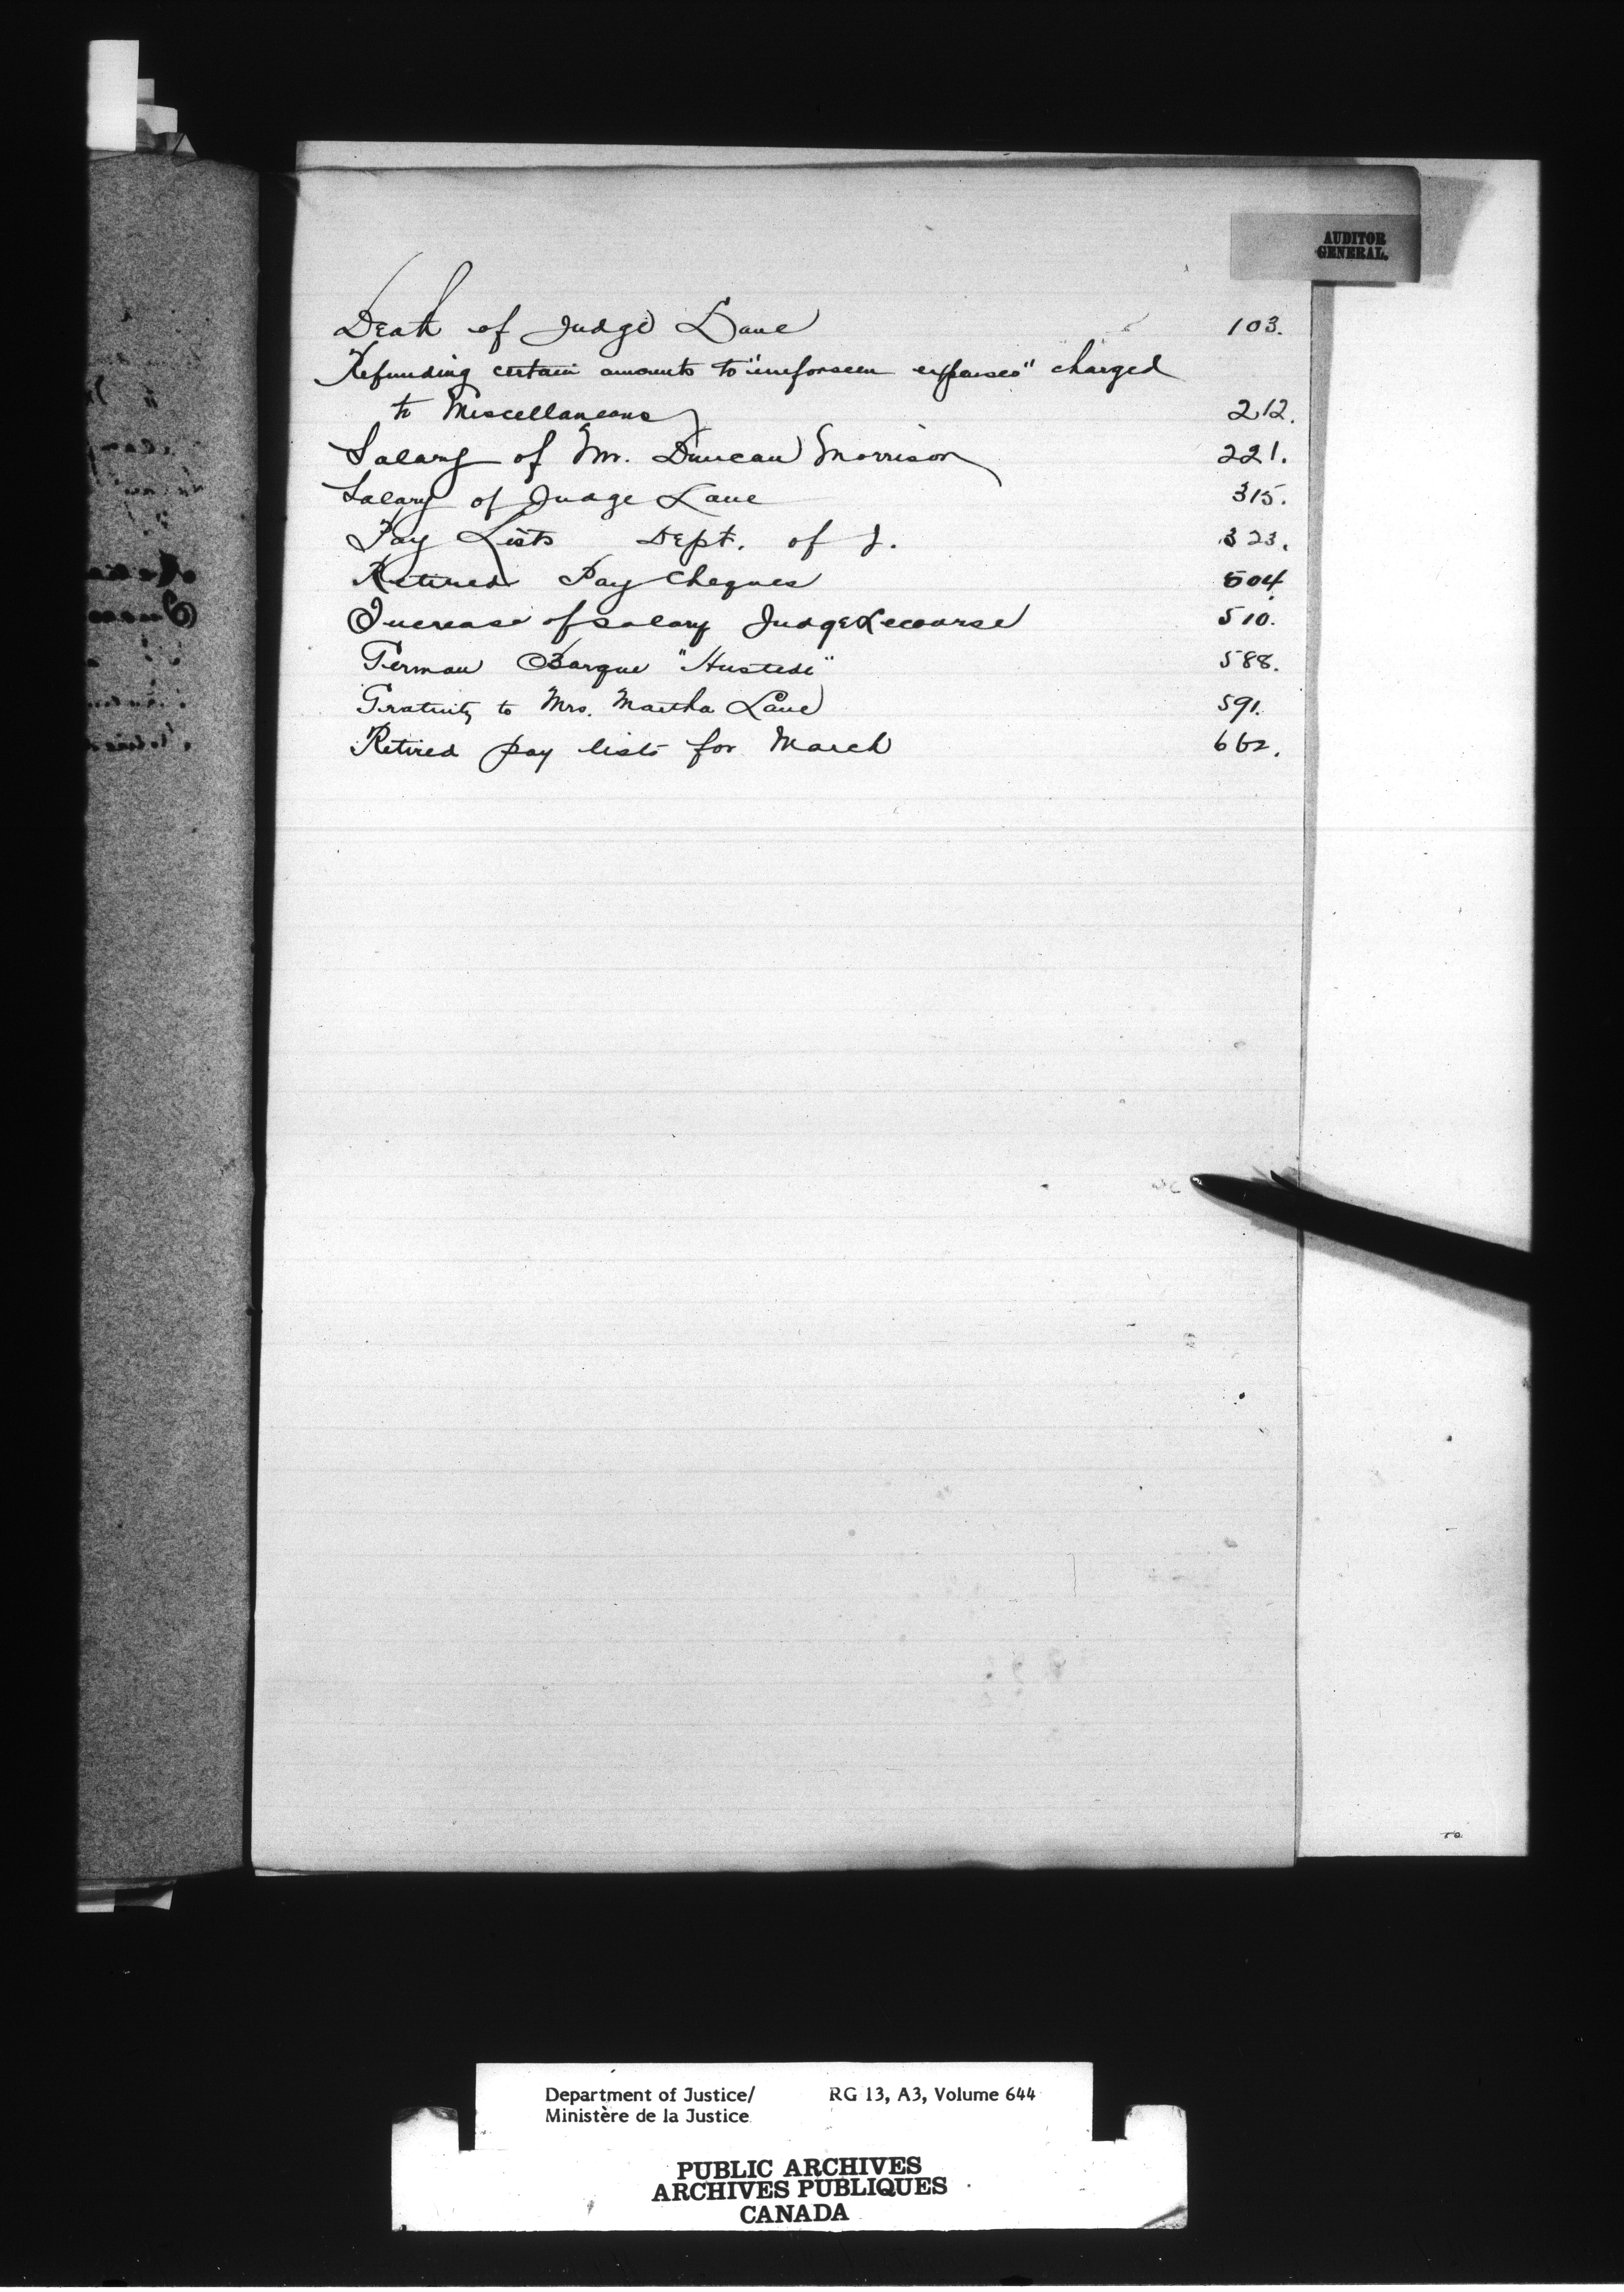 AUDITOR
GENERAL.
Death of Judge Lane 103.
Refunding certain amounts to "unforseen expenses" charged
to Miscellaneous 212.
Salary of Mr. Duncan Morrison 221.
Salary of Judge Lane 315.
Pay Lists Dept. of J. 323.
Retired Pay Cheques 504.
Increase of salary Judge 510.
German Barque "Hustede" 588.
Gratuity to Mrs. Martha Lane 591.
Retired pay lists for March 662.
Department of Justice/ RG 13, A3, Volume 644
Ministère de la Justice
PUBLIC ARCHIVES
ARCHIVES PUBLIQUES
CANADA